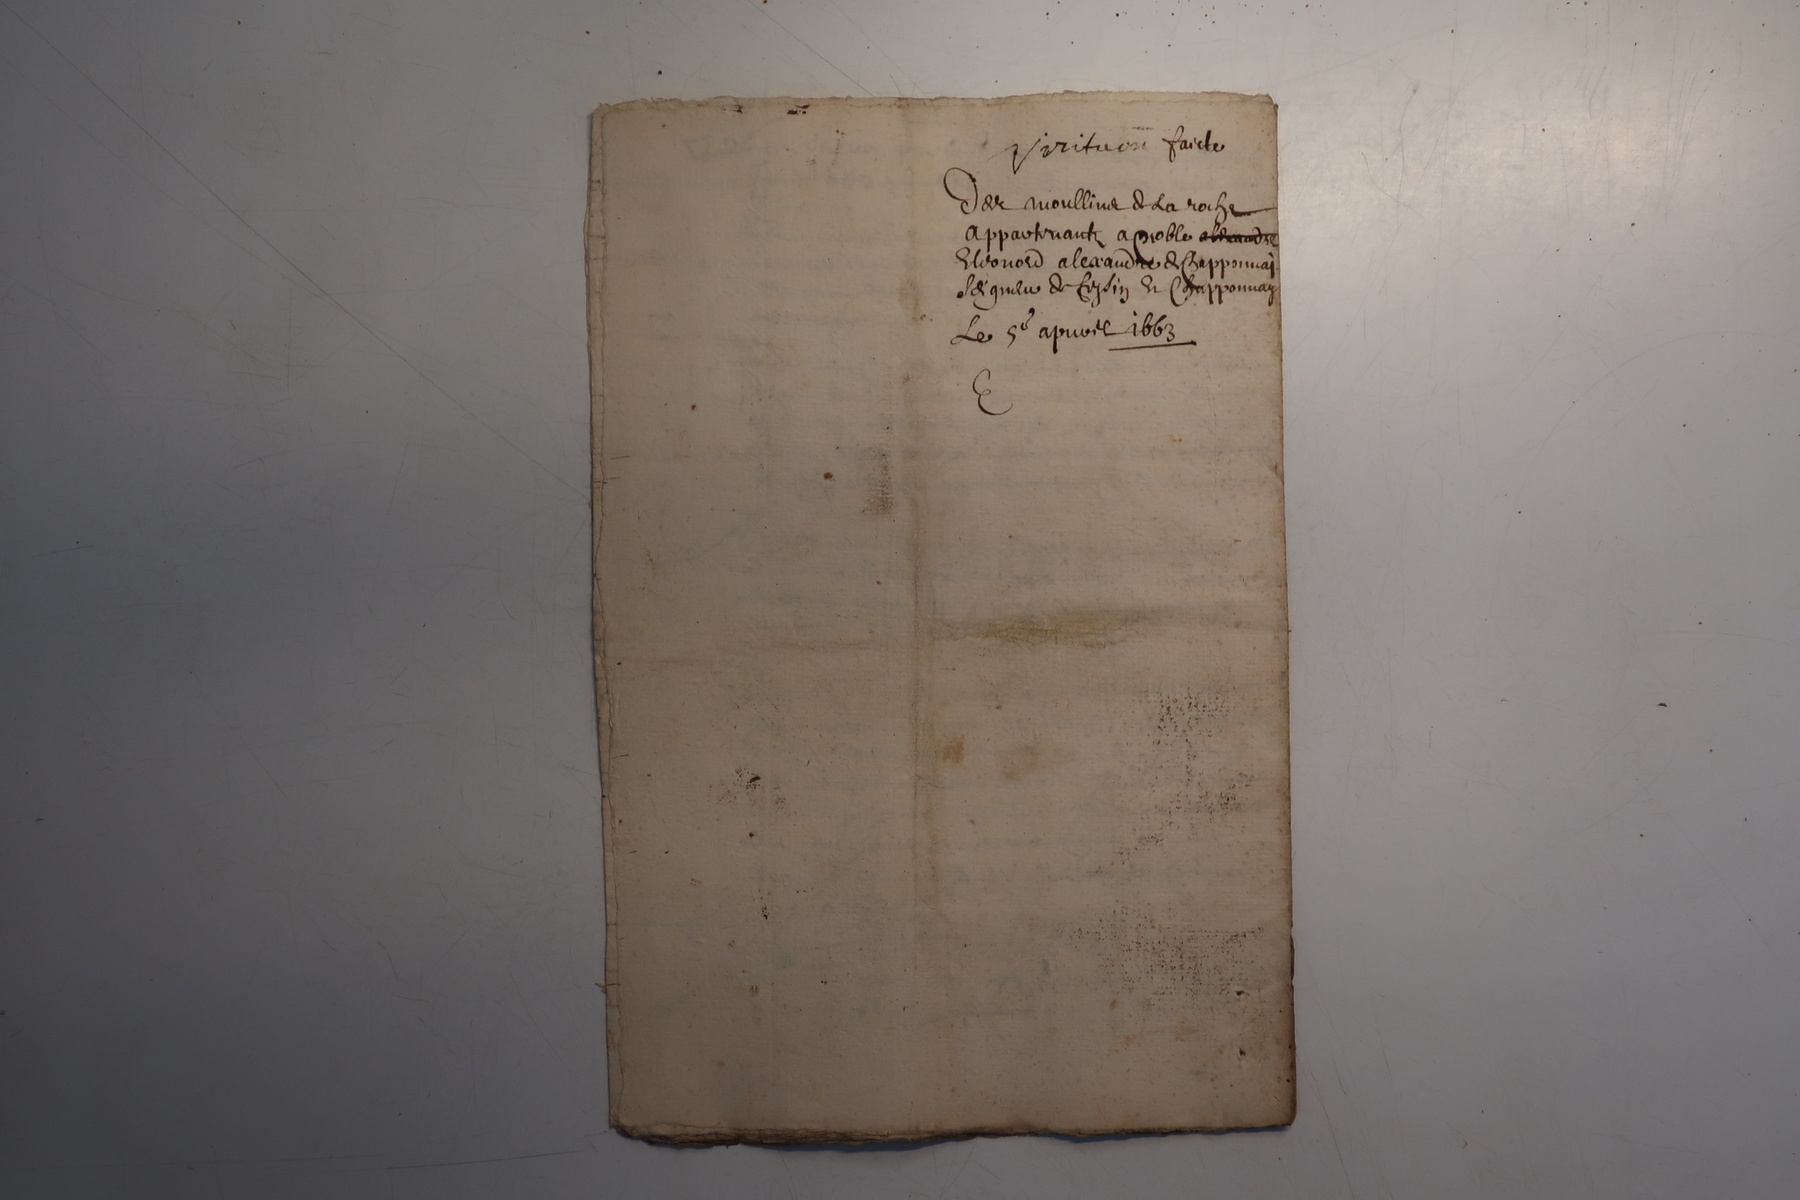 Visitaon faicte
Des moullins de La roche
appartenants a noble alexandre
Eleonord alexandre de Chapponnai
seigneur de Eysin Et Chapponnay
Le 5e apuril 1663
E